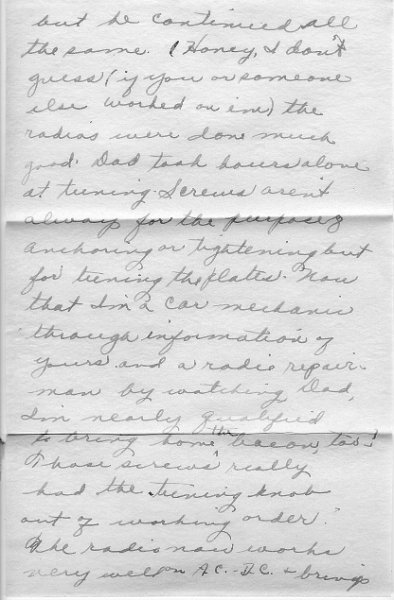 but he continued all
the same. (Honey, I don't
guess (if you or someone
else worked on em) the
radios were done much
good. Dad took hours alone
at tuning. Screws aren't
always for the purpose of
anchoring or tightening but
for tuning the plates. Now
that I'm a car mechanic
through information of
yours and a radio repair-
man by watching Dad,
I'm nearly qualified
to bring home the bacon, too!
Those screws really
had the tuning knob
out of working order.
The radio now works
very well on A.C.-D.C. + brings